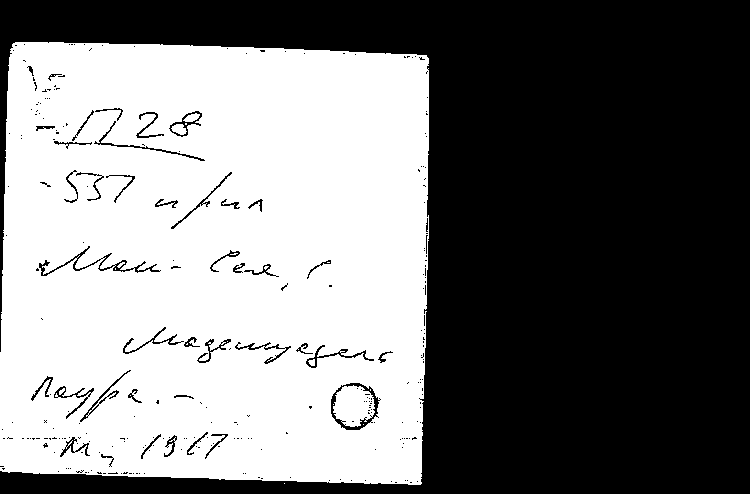 П 28
557 прил
Мои-Сея, С.
Мадемуазель
Лаура. -
М., 1917